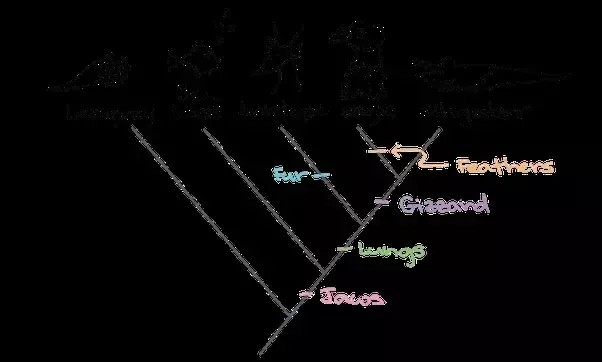 Lamprey
Antelope
Bald
eagle
Alligator
Feathers
Fur
Gizzard
Lungs
Jaws